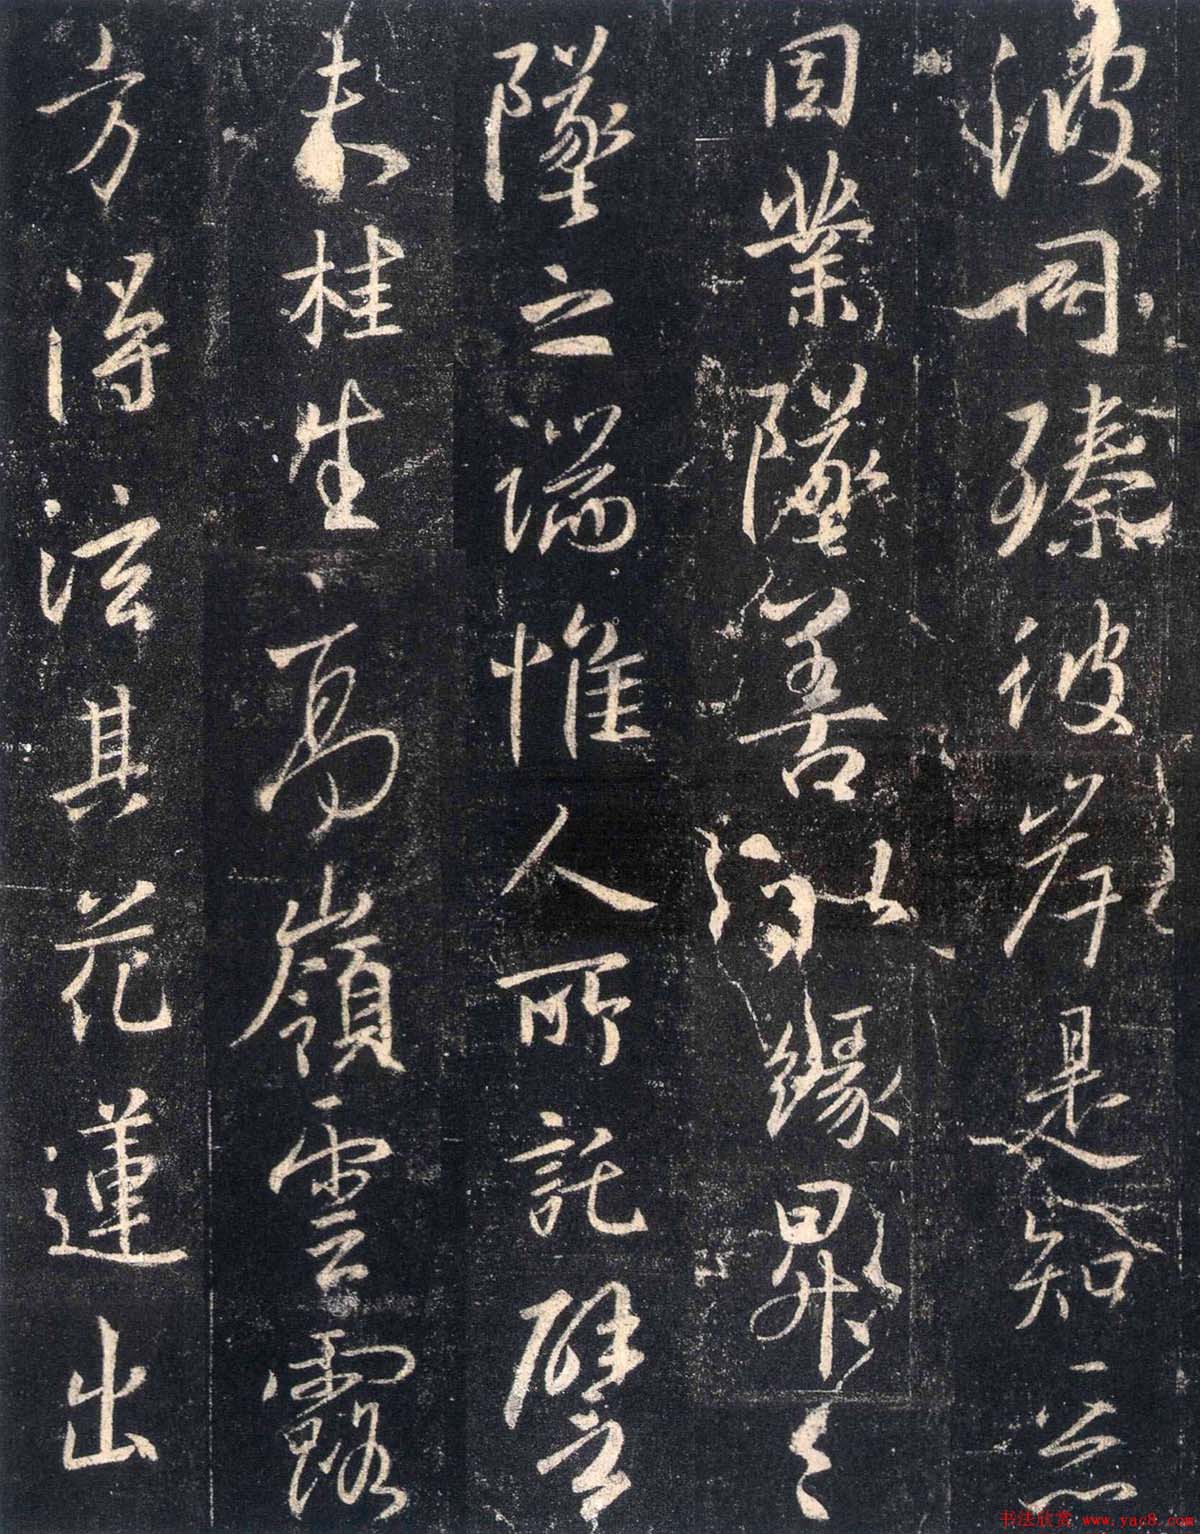 波同臻彼岸是知惡
因業墜善以緣昇々
墜之端惟人所託譬
夫桂生高嶺雲露
方得泫其花蓮出
书法欣赏 www.yac8.com